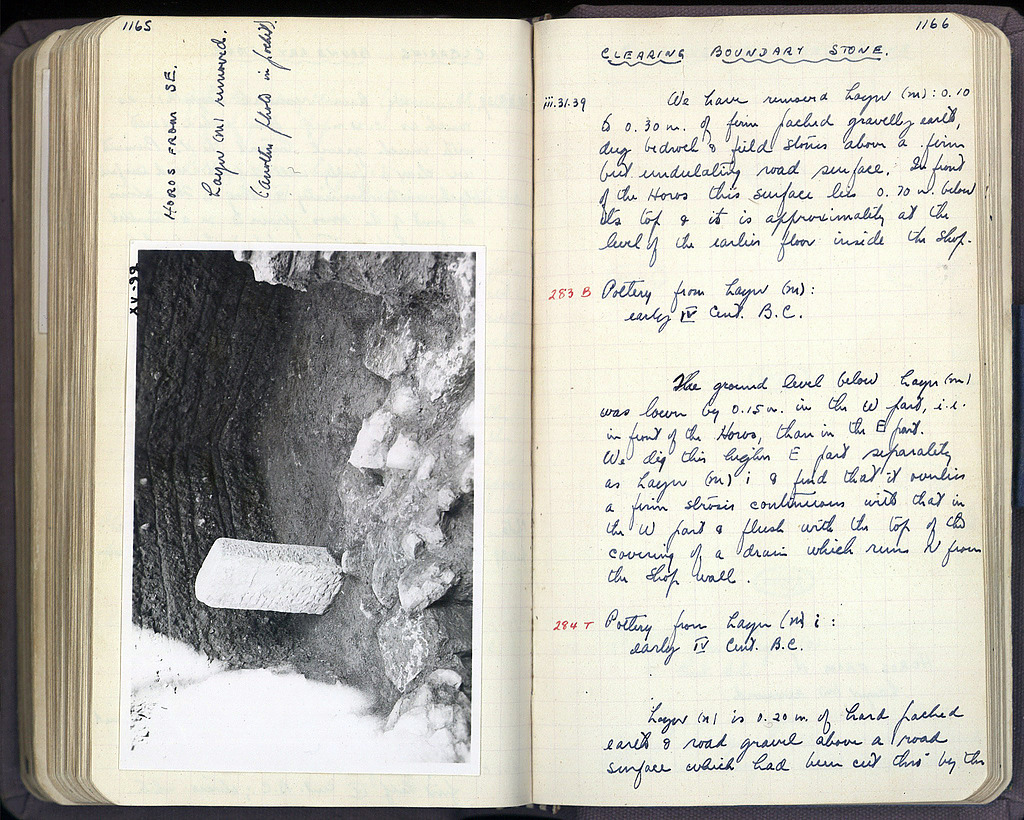 1165
HOROS FROM SE.
Layer (m) removed.
(another photo in pocket)
XV-99
1166
CLEARING BOUNDARY STONE.
iii.31.39
We have removed Layer (m): 0.10
to 0.30 m. of firm packed gravelly earth,
dug bedrock & field stones above a firm
but undulating road surface. In front
of the Horos this surface lies 0.70 m. below
its top & it is approximately at the
level of the earlier floor inside the shop.
283 B
Pottery from Layer (m):
early IV Cent. B.C.
The ground level below Layer (m)
was lower by 0.15 m. in the W part, i.e.
in front of the Horos, than in the E part.
We dig this higher E part separately
as Layer (m) i & find that it overlies
a firm strosis continuous with that in
the W part & flush with the top of the
covering of a drain which runs N from
the shop wall.
284 T
Pottery from Layer (m) i:
early IV Cent. B.C.
Layer (n) is 0.20 m. of hard packed
earth & road gravel above a road
surface which had been cut thro' by the